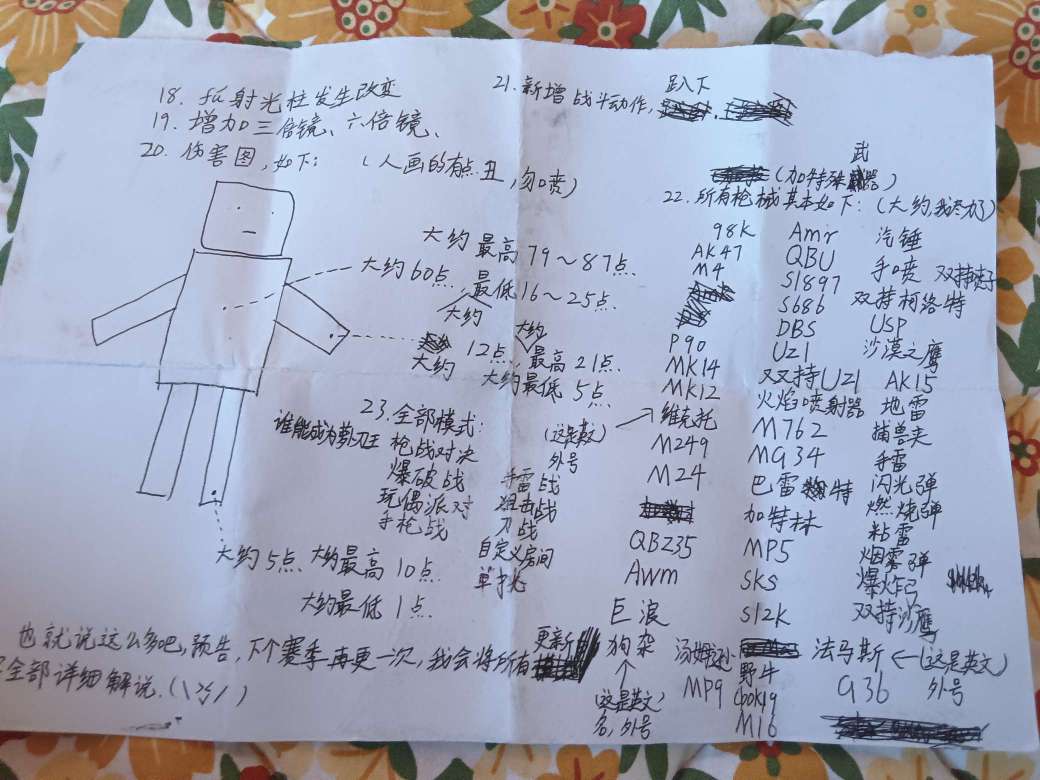 18. 反射光柱发生改变
19. 增加三倍镜、六倍镜、
20. 伤害图，如下：（人画的有点丑，勿喷）
21. 新增战斗动作，趴下
大约最高79～87点
大约60点
最低16～25点
大约
大约
12点，最高21点
大约
大约最低5点
大约5点 大约最高10点
大约最低1点
（加特殊武器）
22. 所有枪械基本如下：（大约，我尽力了）
98k
AK47
M4
P90
MK14
MK12
维克托
（这是英文）
外号
M249
M24
QBZ35
AWm
巨浪
狗杂
（这是英文）
名，外号
Amr
QBU
S1897
S686
DBS
UZ1
双双持UZ1
火焰喷射器
M762
MG34
巴雷特
加特林
MP5
SKS
S12k
汽锤
手喷 双持
双持柯洛特
USP
沙漠之鹰
AK15
地雷
捕兽夹
手雷
闪光弹
燃烧弹
粘雷
烟雾弹
爆炸弓
双持沙鹰
汤姆逊
MP9
野牛
M16
法马斯 ←（这是英文）
G36 外号
23. 全部模式：
谁能成为剪刀王
枪战对决
爆破战 手雷战
玩偶派对 狙击战
手枪战 刀战
自定义房间
单挑
也就说这么多吧，预告，下个赛季再更一次，我会将所有更新
全部详细解说.